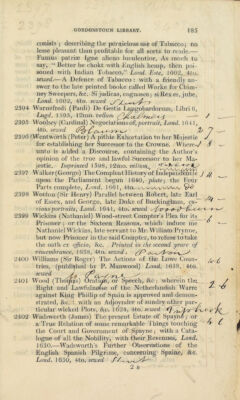 GORDONSTOUN LIBRARY. 185
consists; describing the pernicious use of Tobacco; no
lesse pleasant then profitable for all sorts to reade.—
Fumus patriæ igne alieno luculentior, As much to
say, "Better be chokt with English hemp, then poi-
soned with Indian Tobacco," Lond. Este, 1602, 4to,
sewed.—A Defence of Tobacco: with a friendly an-
swer to the late printed booke called Worke for Chim-
ney Sweepers, &c. Si judicas, cognosce; si Rex es, jube,
Lond. 1602, 4to. sewed
2394 Warnefridi (Pauli) De Gestis Langobardorum, Libri 6,
Lugd. 1595, 12mo. vellum
2395 Woolsey (Cardinal) Negociations of, portrait, Lond. 1641,
4to. sewed 27
2396 (Wentworth (Peter) A pithie Exhortation to her Majestie
for establishing her Successor to the Crowne. Where-
unto is added a Discourse, containing the Author's
opinion of the true and lawful Successor to her Ma-
jestie. Imprinted 1598, 12mo. vellum,
2397 Walker (George) The Compleat History of Independencie
upon the Parliament begun 1640, plate, the Four
Parts complete, Lond. 1661, 4to.
2398 Wotton (Sir Henry) Parallel between Robert, late Earl
of Essex, and George, late Duke of Buckingham, cu-
rious portraits, Lond. 1641, 4to. sewed
2399 Wickins (Nathaniel) Wood-street Compter's Plea for its
Prisoner: or the Sixteen Reasons, which induce
Nathaniel Wickins, late servant to Mr. William Prynne,
but now Prisoner in the said Compter, to refuse to take
the oath ex officio, &c. Printed in the second year of
remembrance, 1638, 4to. sewed
2400 Williams (Sir Roger) The Actions of the Lowe Coun-
tries, (published by P. Manwood) Lond. 1618, 4to.
sewed
2401 Wood (Thomas) Oration, or Speech, &c; wherein the
Right and Lawfulness of the Netherlandish Warre
against King Phillip of Spain is approved and demon-
strated, &c.: with an Adjoynder of sundry other par-
ticular wicked Plots, &c. 1624, 4to. sewed
2402 Wadsworth (James) The present Estate of Spayne, or
a True Relation of some remarkable Things touching
the Court and Government of Spayne; with a Cata-
logue of all the Nobility, with their Revenues, Lond.
1630.—Wadsworth's Further Observations of the
English Spanish Pilgrime, concerning Spaine, &c.
Lond. 1630, 4to. sewed